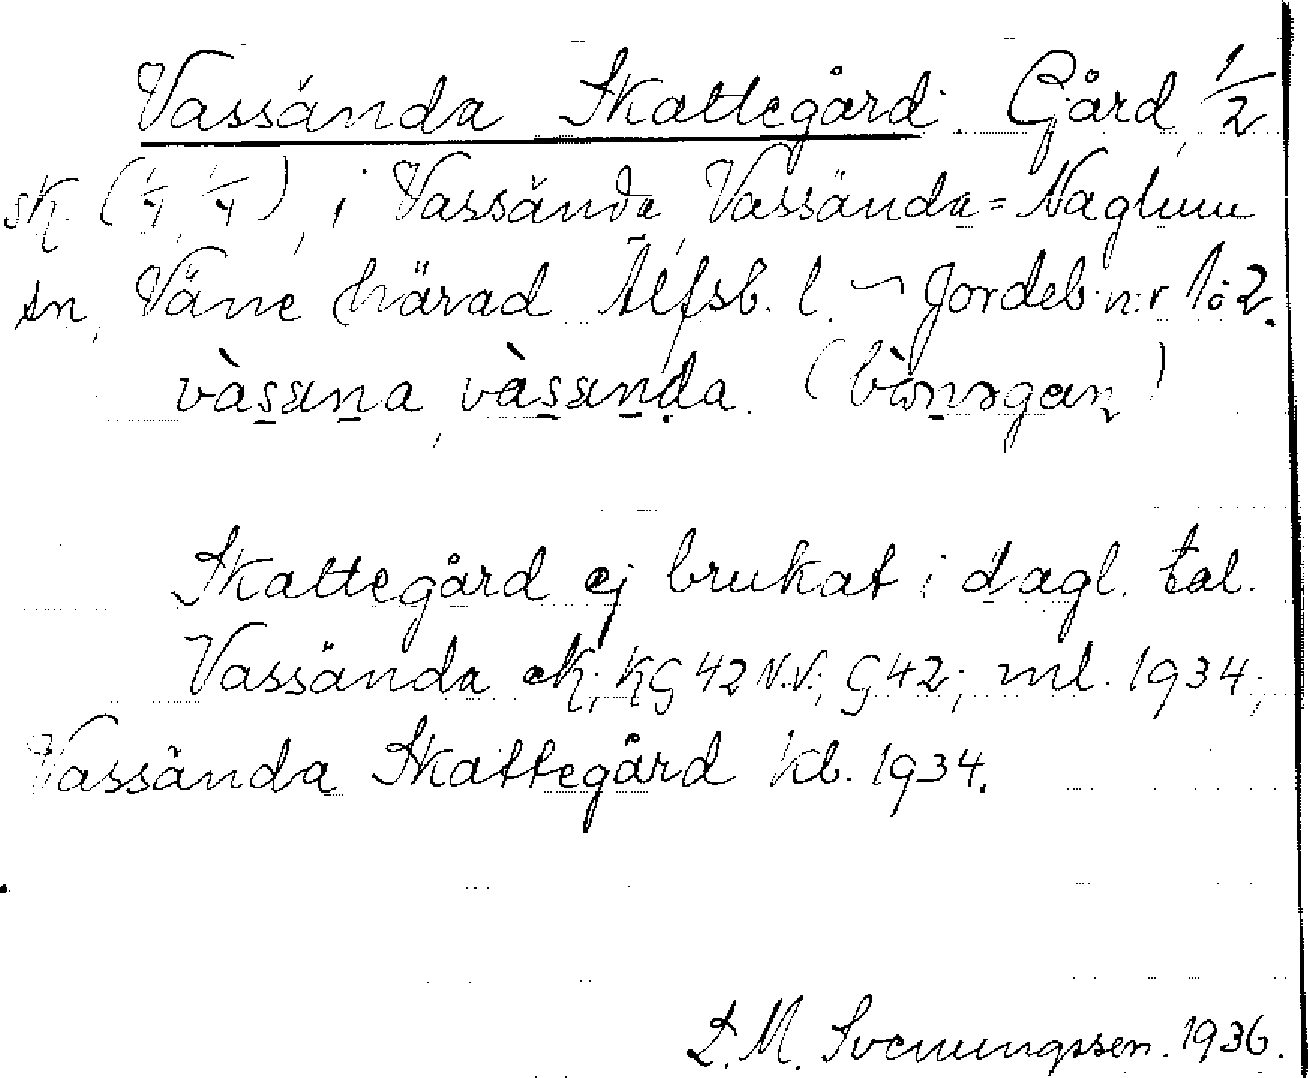 Vassända Skattegård. Gård, 1/2
sk. (1/4, 1/4), i Vassända, Vassända=Naglum
sn, Väne härad Älfsb. l. ~ Jordeb. nr 1o2.
vàsạna, vàsạnda. (bònəgan)
Skattegård ej brukat i dagl. tal.
Vassända ek; KG 42 N.V.; G 42; ml. 1934;
Vassända Skattegård kb. 1934.
L. M. Svenungsson. 1936.